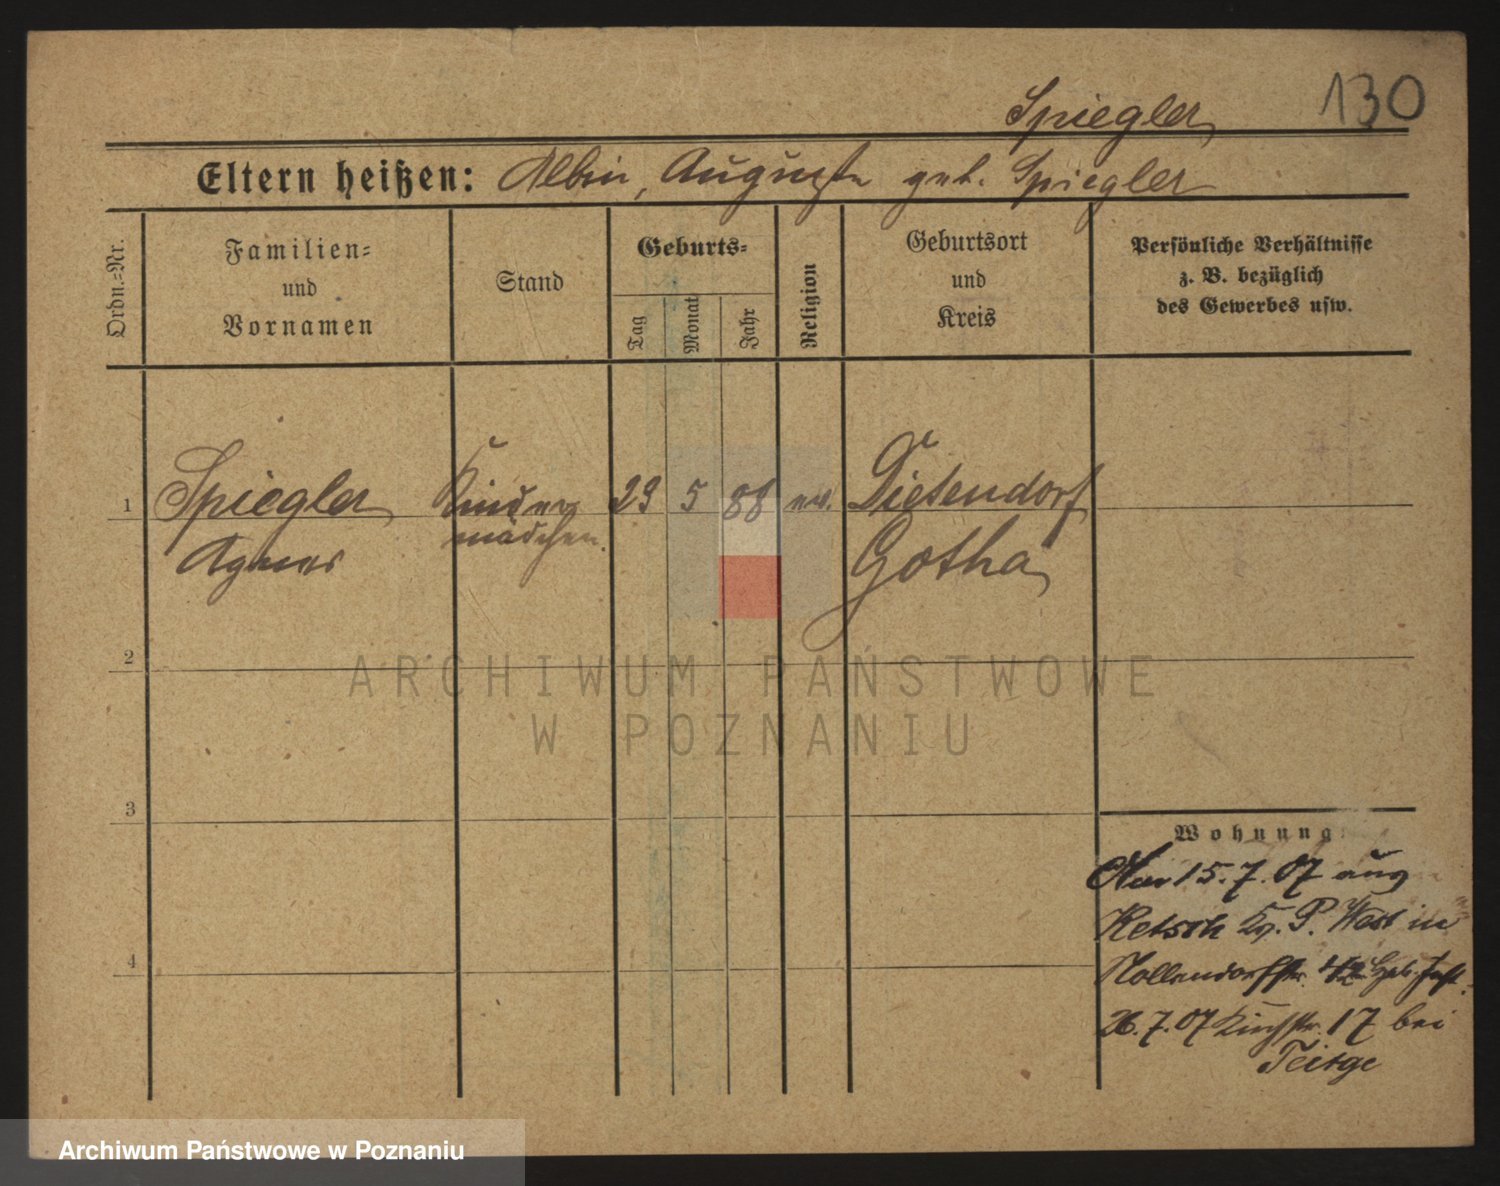 130
Spiegler
Eltern heißen: Albin, Auguste geb. Spiegler
Ordn.=Nr.
Familien=
und
Vornamen
Stand
Geburts=
Tag
Monat
Jahr
Religion
Geburtsort
und
Kreis
Persönliche Verhältnisse
z. B. bezüglich
des Gewerbes usw.
1 Spiegler Kinder 23 5 88 ev. Dietendorf
Agnes mädchen. Gotha
2
3
4
Wohnung
15.7.07 aus
Ketsch P. West in
Nollendorfstr.
26.7.07 Kirchstr. 17 bei
Teitge
ARCHIWUM PAŃSTWOWE
W POZNANIU
Archiwum Państwowe w Poznaniu